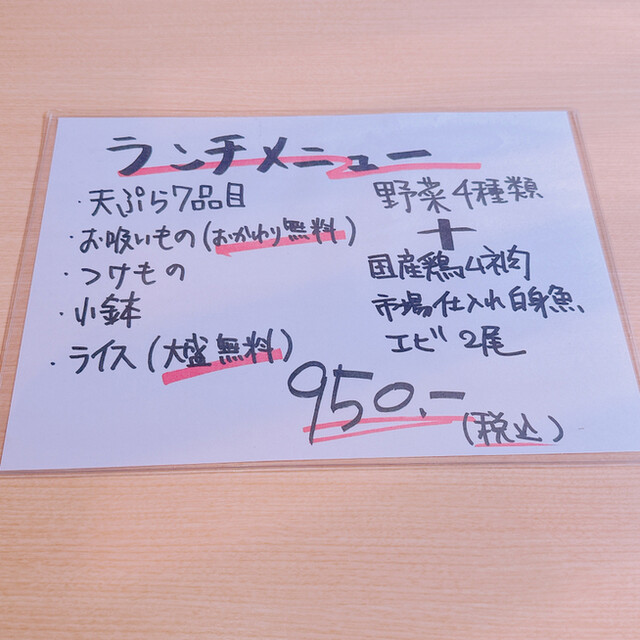 ランチメニュー
・天ぷら7品目
・お吸いもの(おかわり無料)
・つけもの
・小鉢
・ライス(大盛無料)
野菜4種類
＋
国産鶏ムネ肉
市場仕入れ白身魚、
エビ2尾
950.-
(税込)